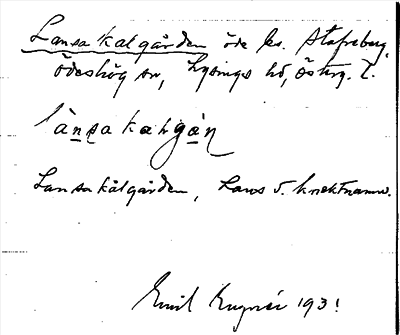 Lansa kålgården öde ks. Stafreberg,
Ödeshög sn, Lysings hd, Österg. l.
lànsa kahgàn
Lansa kålgården, Lars s. knektnamn.
Emil 1931